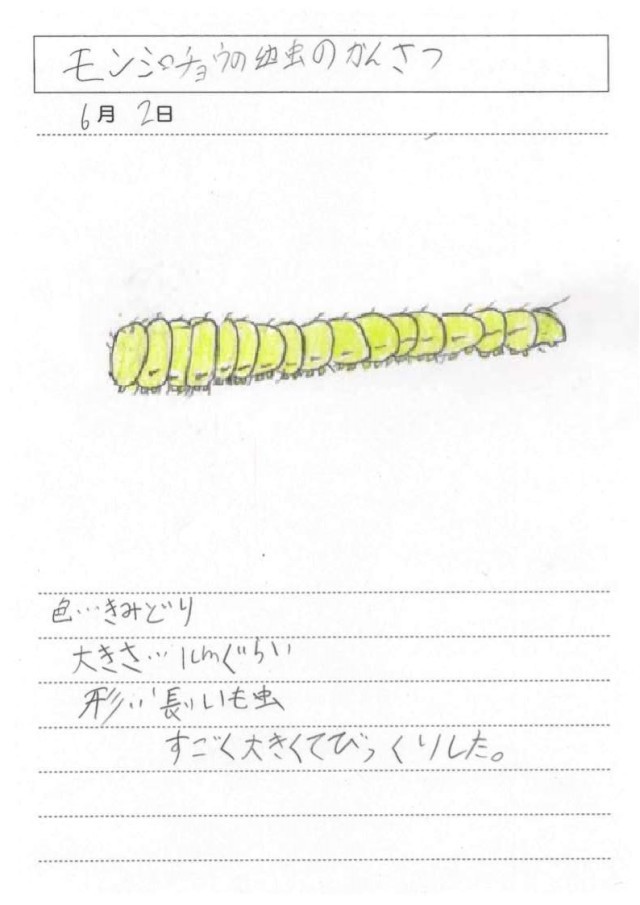 モンシロチョウの幼虫のかんさつ
6月 2日
色…きみどり
大きさ…1cmぐらい
形…長いいも虫
すごく大きくてびっくりした。